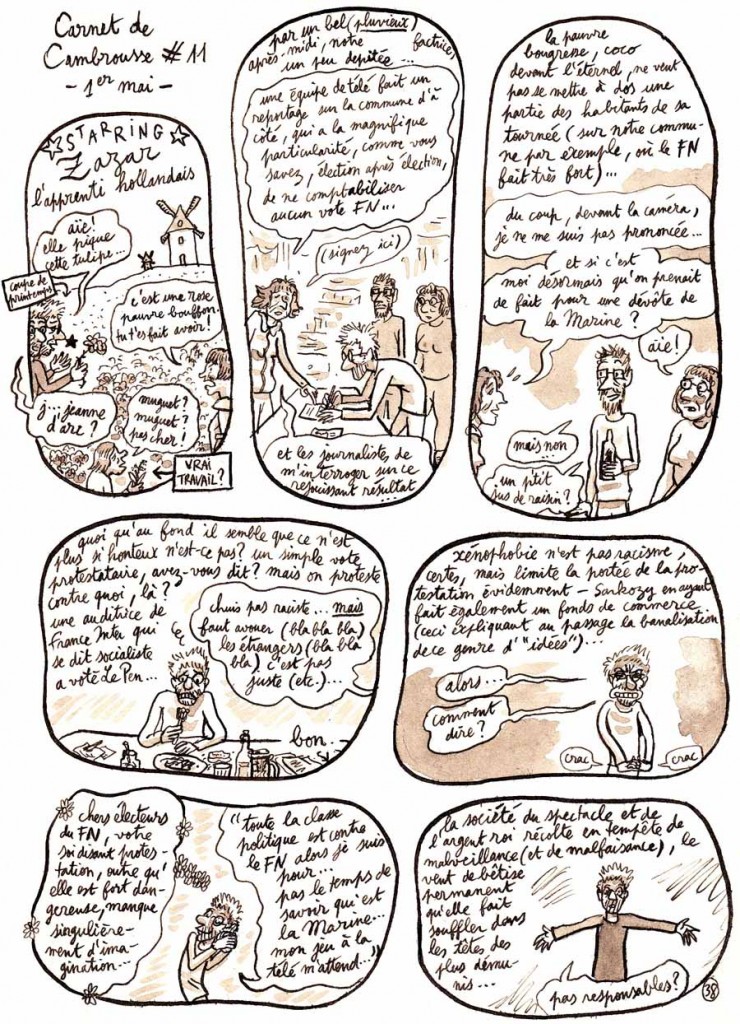 Carnet de
Cambrousse #11
- 1er mai -
STARRING
Zazar
l'apprenti hollandais
aïe!
elle pique
cette tulipe...
coupe de
printemps
c'est une rose
pauvre bouffon.
tu t'es fait avoir!
j... jeanne
d'arc?
muguet?
muguet?
pas cher!
VRAI
TRAVAIL?
par un bel (pluvieux)
après-midi, notre factrice,
un peu dépitée...
une équipe de télé fait un
reportage sur la commune d'à
côté, qui a la magnifique
particularité, comme vous
savez, élection après élection,
de ne comptabiliser
aucun vote FN...
(signez ici)
et les journalistes de
m'interroger sur ce
réjouissant résultat
la pauvre
bougresse, coco
devant l'éternel, ne veut
pas se mettre à dos une
partie des habitants de sa
tournée (sur notre commu-
ne par exemple, où le FN
fait très fort)...
du coup, devant la caméra,
je ne me suis pas prononcée...
et si c'est
moi désormais qu'on prenait
de fait pour une dévôte de
la Marine?
aïe!
mais non
un p'tit
jus de raisin?
quoi qu'au fond il semble que ce n'est
plus si honteux n'est-ce pas? un simple vote
protestataire, avez-vous dit? mais on proteste
contre quoi, là?
une auditrice de
France Inter qui
se dit socialiste
a voté Le Pen...
chuis pas raciste... mais
faut avouer (bla bla bla)
les étrangers (bla bla
bla) c'est pas
juste (etc.)...
bon.
xénophobie n'est pas racisme,
certes, mais limite la portée de la pro-
testation évidemment - Sarkozy en ayant
fait également un fonds de commerce
(ceci expliquant au passage la banalisation
de ce genre d'"idées")...
alors...
comment
dire?
crac
crac
chers électeurs
du FN, votre
soi disant protes-
tation, outre qu'
elle est fort dan-
gereuse, manque
singulière-
ment d'ima-
gination...
"toute la classe
politique est contre
le FN alors je suis
pour...
pas le temps de
savoir qui est
la Marine...
mon jeu à la
télé m'attend..."
la société du spectacle et de
l'argent roi récolte en tempête de
malveillance (et de malfaisance), le
vent de bêtise
permanent
qu'elle fait
souffler dans
les têtes des
plus dému-
nis...
pas responsables?
38